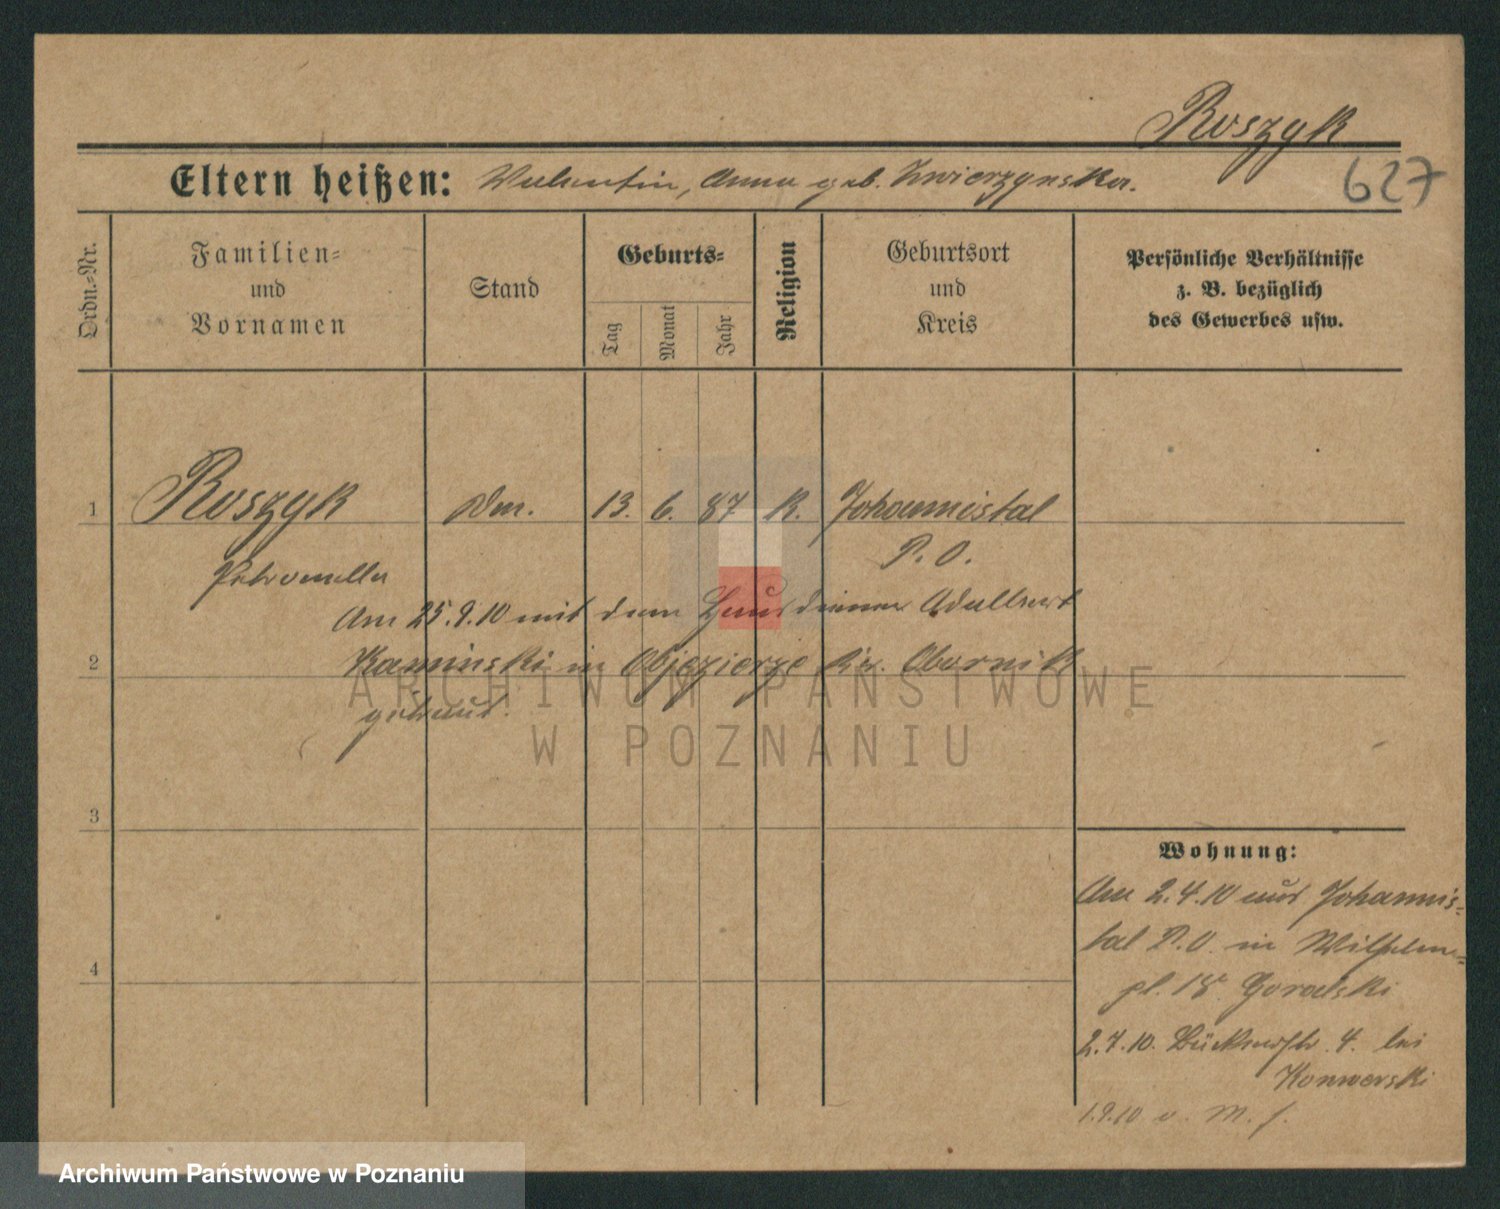 Roszyk
627
Eltern heißen: Valentin, Anna geb. Zwierzynska.
Ordn.-Nr.
Familien-
und
Vornamen
Stand
Geburts-
Tag
Monat
Jahr
Religion
Geburtsort
und
Kreis
Persönliche Verhältnisse
z. B. bezüglich
des Gewerbes usw.
1 Roszyk 13. 6. 87 K. Johannistal
P. O.
Petronella
Am 25.9.10 mit dem Hausdiener Adalbert
2 Kaminski in Objezierze Kr. Obornik
getraut.
3
4
Wohnung:
Am 2.4.10 aus Johannis-
tal P.O. in Wilhelm-
pl. 18. Goralski
2.7.10. 4. bei
Konwerski
1.9.10 v. M. f.
ARCHIWUM PAŃSTWOWE
W POZNANIU
Archiwum Państwowe w Poznaniu